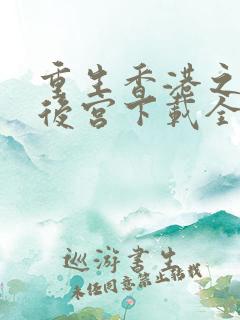 重生香港之
後宮下載全
巡游書生
未经同意禁止转载